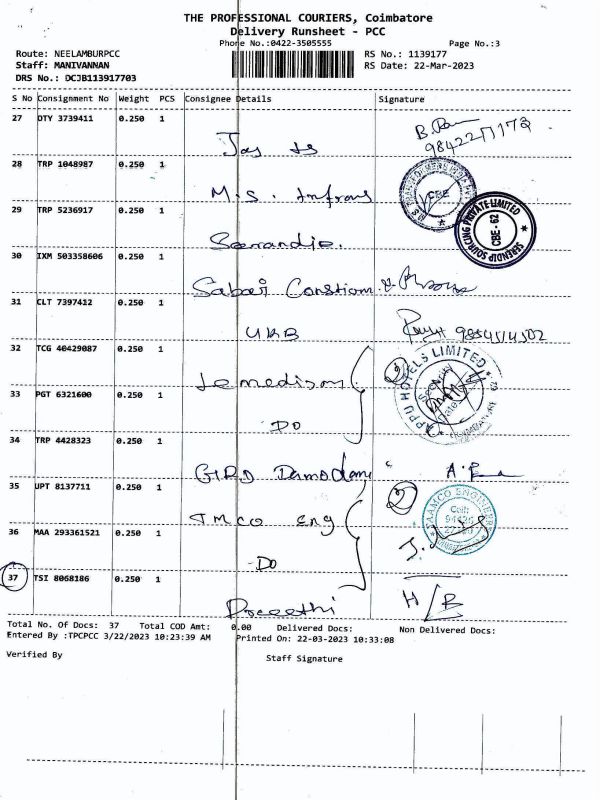 THE PROFESSIONAL COURIERS, Coimbatore
Delivery Runsheet - PCC
Phone No.:0422-3505555
Page No.:3
Route: NEELAMBURPCC
RS No.: 1139177
Staff: MANIVANNAN
RS Date: 22-Mar-2023
DRS No.: DCJB113917703
S No Consignment No Weight PCS Consignee Details Signature
27 DTY 3739411 0.250 1
28 TRP 1048987 0.250 1
M.S.
CBE
29 TRP 5236917 0.250 1
SERENDIP SOURCING PRIVATE LIMITED
CBE - 62
30 IXM 503358606 0.250 1
31 CLT 7397412 0.250 1
UKB
32 TCG 40429087 0.250 1
Lemedison
2
APPU HOTELS LIMITED
33 PGT 6321600 0.250 1
DO
34 TRP 4428323 0.250 1
GRD
35 UPT 8137711 0.250 1
TMCO eng
2
36 MAA 293361521 0.250 1
DO
37 TSI 8068186 0.250 1
Preethi
H/B
Total No. Of Docs: 37 Total COD Amt: 0.00 Delivered Docs: Non Delivered Docs:
Entered By :TPCPCC 3/22/2023 10:23:39 AM Printed On: 22-03-2023 10:33:08
Verified By Staff Signature